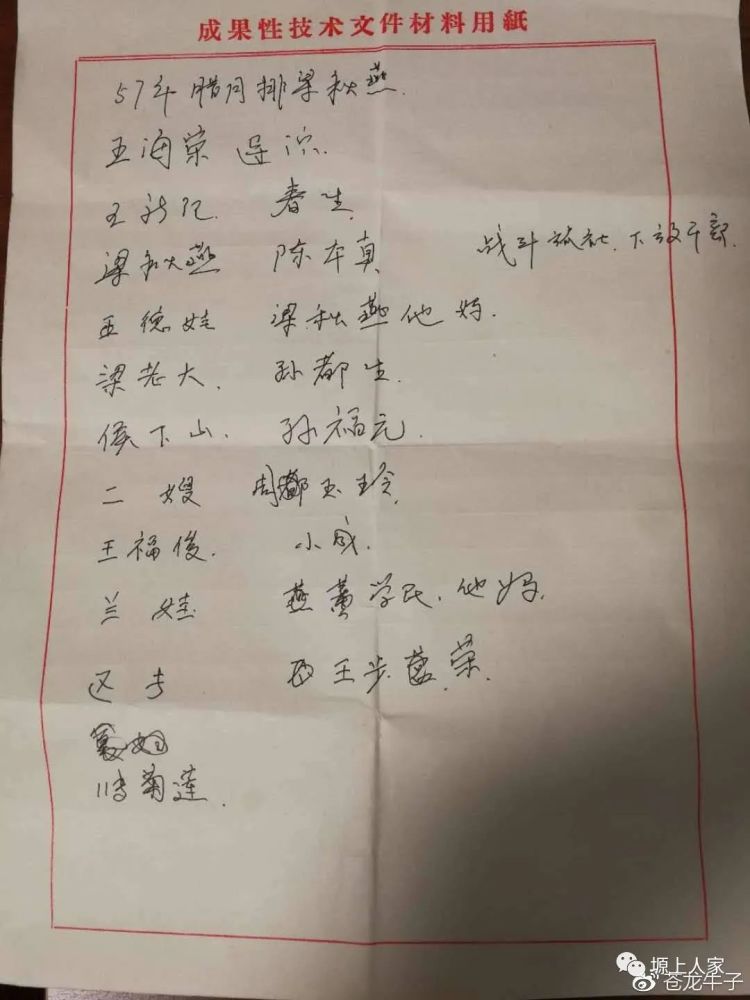 成果性技术文件材料用紙
57年腊月排梁秋燕.
王海荣 导演.
王新记. 春生.
梁秋燕 陈本真 战斗剧社.下放干部.
王德娃 梁秋燕他妈.
梁老大. 孙都生.
侯下山. 孙福元.
二嫂 周玉玲
王福俊. 小成.
兰娃 董学民.他妈.
区专 王步荣.
菊莲.
塬上人家
@苍龙牛子